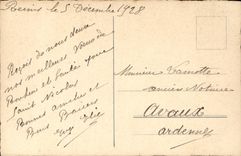 Reims le 5 Décembre 1928
Reçois de nous deux
nos meilleurs Vœux de
Bonheur et Santé pour
Saint Nicolas
Bonnes amitiés et
Bons Baisers
Monsieur Varnotte
ancien Notaire
Avaux
Ardennes